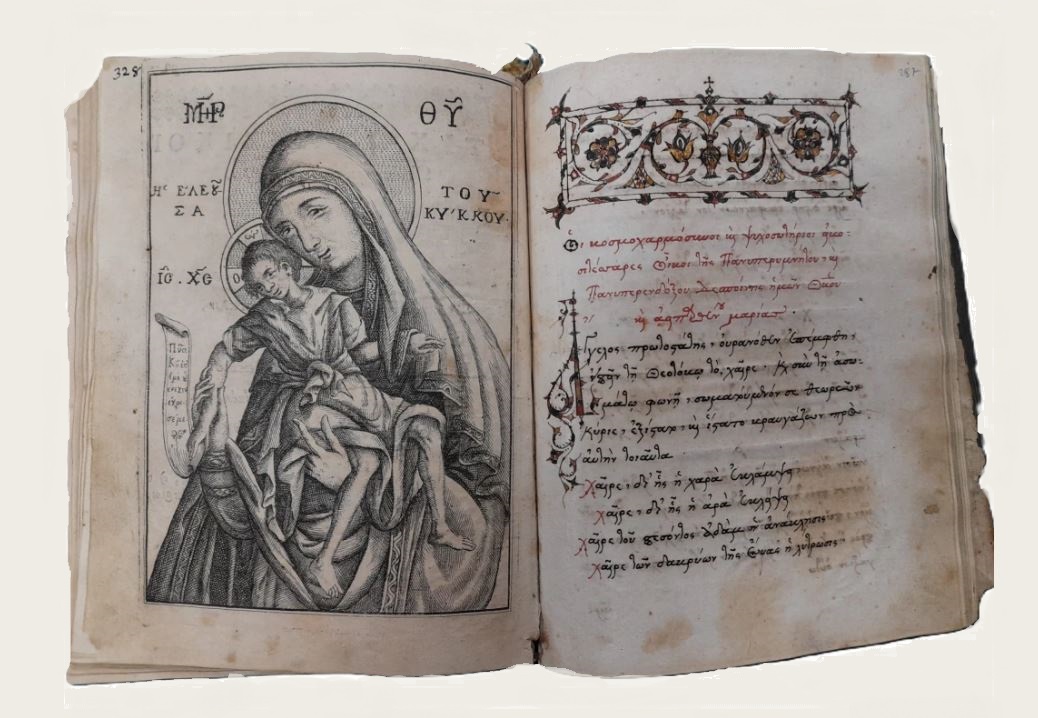 328
ΜΡ ΘΥ
Ἡ ΕΛΕΟΥ
ΣΑ
ΤΟΥ
ΚΥΚΚΟΥ.
ΙϹ . ΧϹ
Ο
Πνα
Κυ
ἐπ ἐμὲ
ἔχρι
σέ με
387
Οἱ κοσμοχαρμόσυνοι κὶ ψυχοσωτήριοι
Οἶκοι τῆς Πανυπερυμνήτου, κὶ
Πανυπερενδόξου Δεσποίνης ἡμῶν Θκου
κὶ ἀειπαρθένου μαρίας.
Ἄγγελος πρωτοστάτης, οὐρανόθεν ἐπέμφθη,
εἰπεῖν τῇ Θεοτόκῳ τὸ, χαῖρε. κὶ σὺν τῇ ἀσω-
μάτῳ φωνῇ, σωματούμενόν σε θεωρῶν
Κύριε, ἐξίσταο, κὶ ἵστατο κραυγάζων πρὸς
αὐτὴν τοιαῦτα
χαῖρε, δι' ἧς ἡ χαρὰ ἐκλάμψει
χαῖρε, δι' ἧς ἡ ἀρὰ ἐκλείψει
χαῖρε τοῦ πεσόντος Ἀδὰμ ἡ ἀνάκλησις
χαῖρε τῶν δακρύων τῆς Εὔας ἡ λύτρωσις